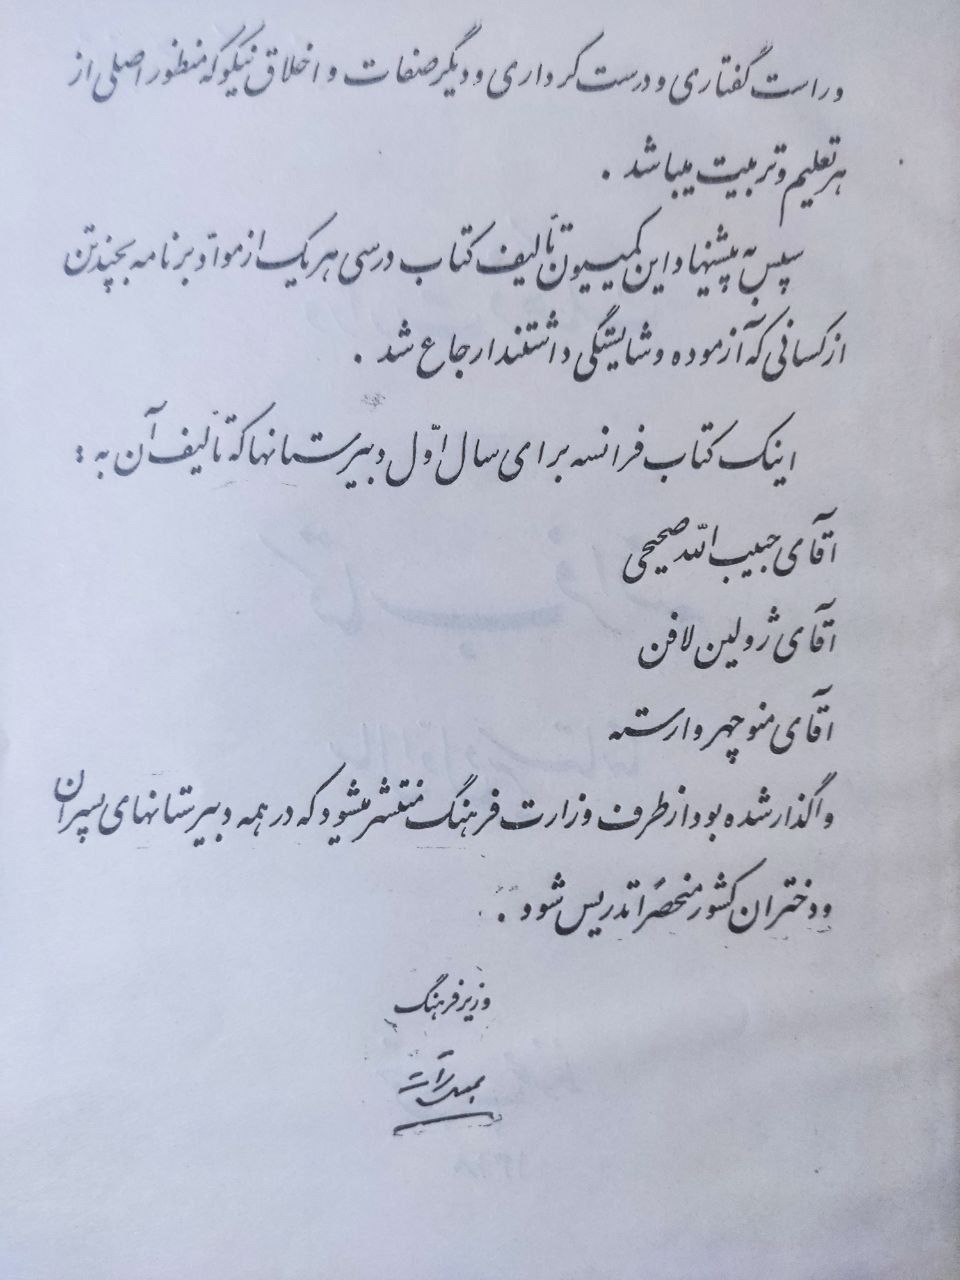 و راست گفتاری و درست کرداری و دیگر صفات و اخلاق نیکو که منظور اصلی از
هر تعلیم و تربیت میباشد .
سپس به پیشنهاد این کمیسیون تألیف کتاب درسی هر یک از مواد برنامه بچند تن
از کسانی که آزموده و شایستگی داشتند ارجاع شد .
اینک کتاب فرانسه برای سال اوّل دبیرستانها که تألیف آن به :
آقای حبیب الله صحیحی
آقای ژولین لافن
آقای منوچهر وارسته
واگذار شده بود از طرف وزارت فرهنگ منتشر میشود که در همه دبیرستانهای پسران
و دختران کشور منحصراً تدریس شود .
وزیر فرهنگ